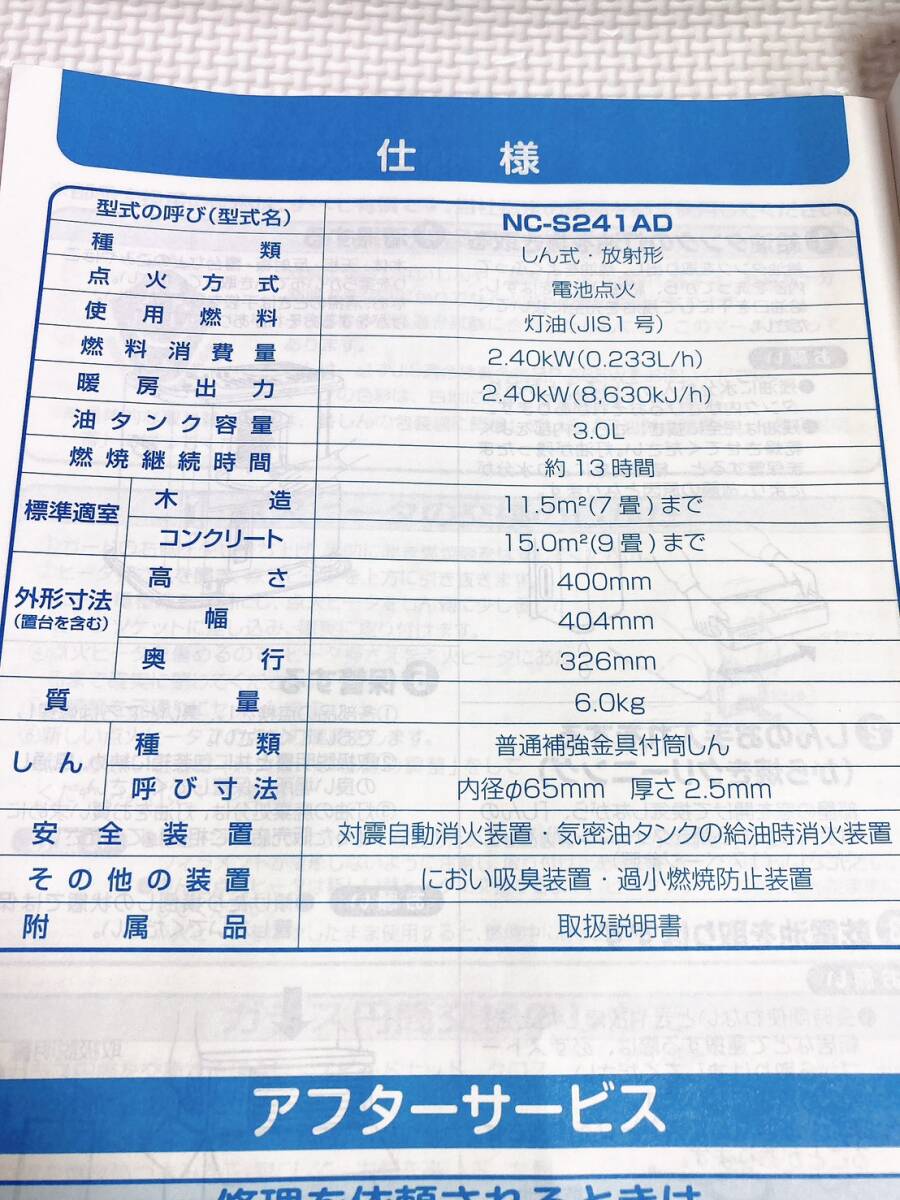 仕様
型式の呼び(型式名) NC-S241AD
種類 しん式・放射形
点火方式 電池点火
使用燃料 灯油(JIS1号)
燃料消費量 2.40kW(0.233L/h)
暖房出力 2.40kW(8,630kJ/h)
油タンク容量 3.0L
燃焼継続時間 約13時間
標準適室 木造 11.5m²(7畳)まで
コンクリート 15.0m²(9畳)まで
外形寸法 (置台を含む) 高さ 400mm
幅 404mm
奥行 326mm
質量 6.0kg
しん 種類 普通補強金具付筒しん
呼び寸法 内径φ65mm 厚さ2.5mm
安全装置 対震自動消火装置・気密油タンクの給油時消火装置
その他の装置 におい吸臭装置・過小燃焼防止装置
附属品 取扱説明書
アフターサービス
修理を依頼されるときは